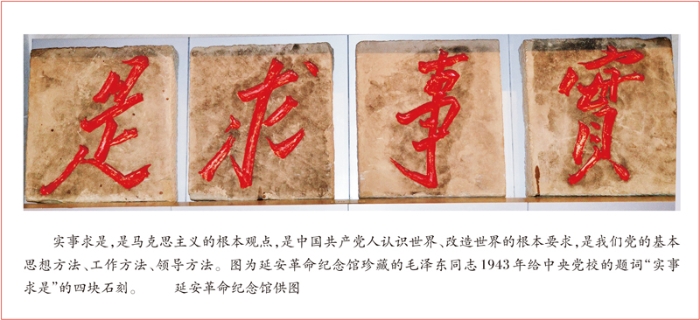 實事求是
实事求是，是马克思主义的根本观点，是中国共产党人认识世界、改造世界的根本要求，是我们党的基本
思想方法、工作方法、领导方法。图为延安革命纪念馆珍藏的毛泽东同志1943年给中央党校的题词“实事
求是”的四块石刻。 延安革命纪念馆供图